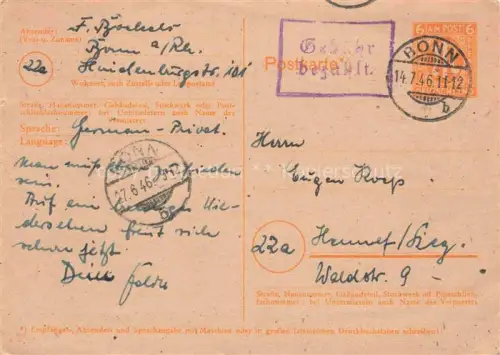 Absender:
F. Böckels
(Vor- u. Zuname)
Bonn a/Rh.
22a
Hindenburgstr. 101
Wohnort, auch Zustell- oder Leitpostamt
Straße, Hausnummer, Gebäudeteil, Stockwerk oder Post-
schließfachnummer; bei Untermietern auch Name des
Vermieters
Sprache: German - Privat.
Language:
man muß
sein.
Auf ein Wie-
dersehen freut sich
schon jetzt
Dein
BONN
27.6.46
Gebühr
bezahlt.
Postkarte*)
6 A.M. POST 6
BONN
14.7.46.11-12
b
Herrn
Eugen
22a
Hennef/Sieg.
Waldstr. 9 -
Straße, Hausnummer, Gebäudeteil, Stockwerk od. Postschließ-
fachnummer; bei Untermietern auch Name des Vermieters
*) Empfangs-, Absender- und Sprachangabe mit Maschine oder in großen lateinischen Druckbuchstaben schreiben!